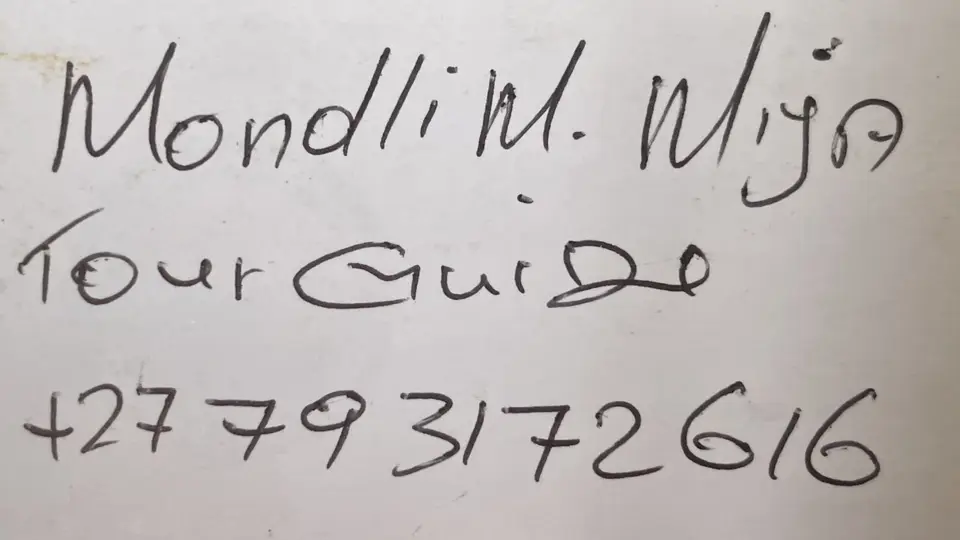 Mondli M. Miya
Tour Guide
+27 793172616